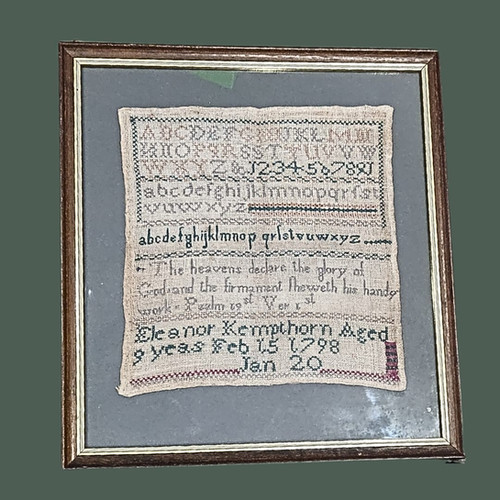 ABCDEFGHIJKLMM
NOPQRSSTTUVVW
WXYZ & 1234567891
abcdefghijklmnopqrſst
vuwxyz
abcdefghijklmnop qrſstvuwxyz
The heavens declare the glory of
God: and the firmament ſheweth his handy
work - Psalm 19st Ver 1st
Eleanor Kempthorn Aged
9 yeas Feb 15 1798
Jan 20